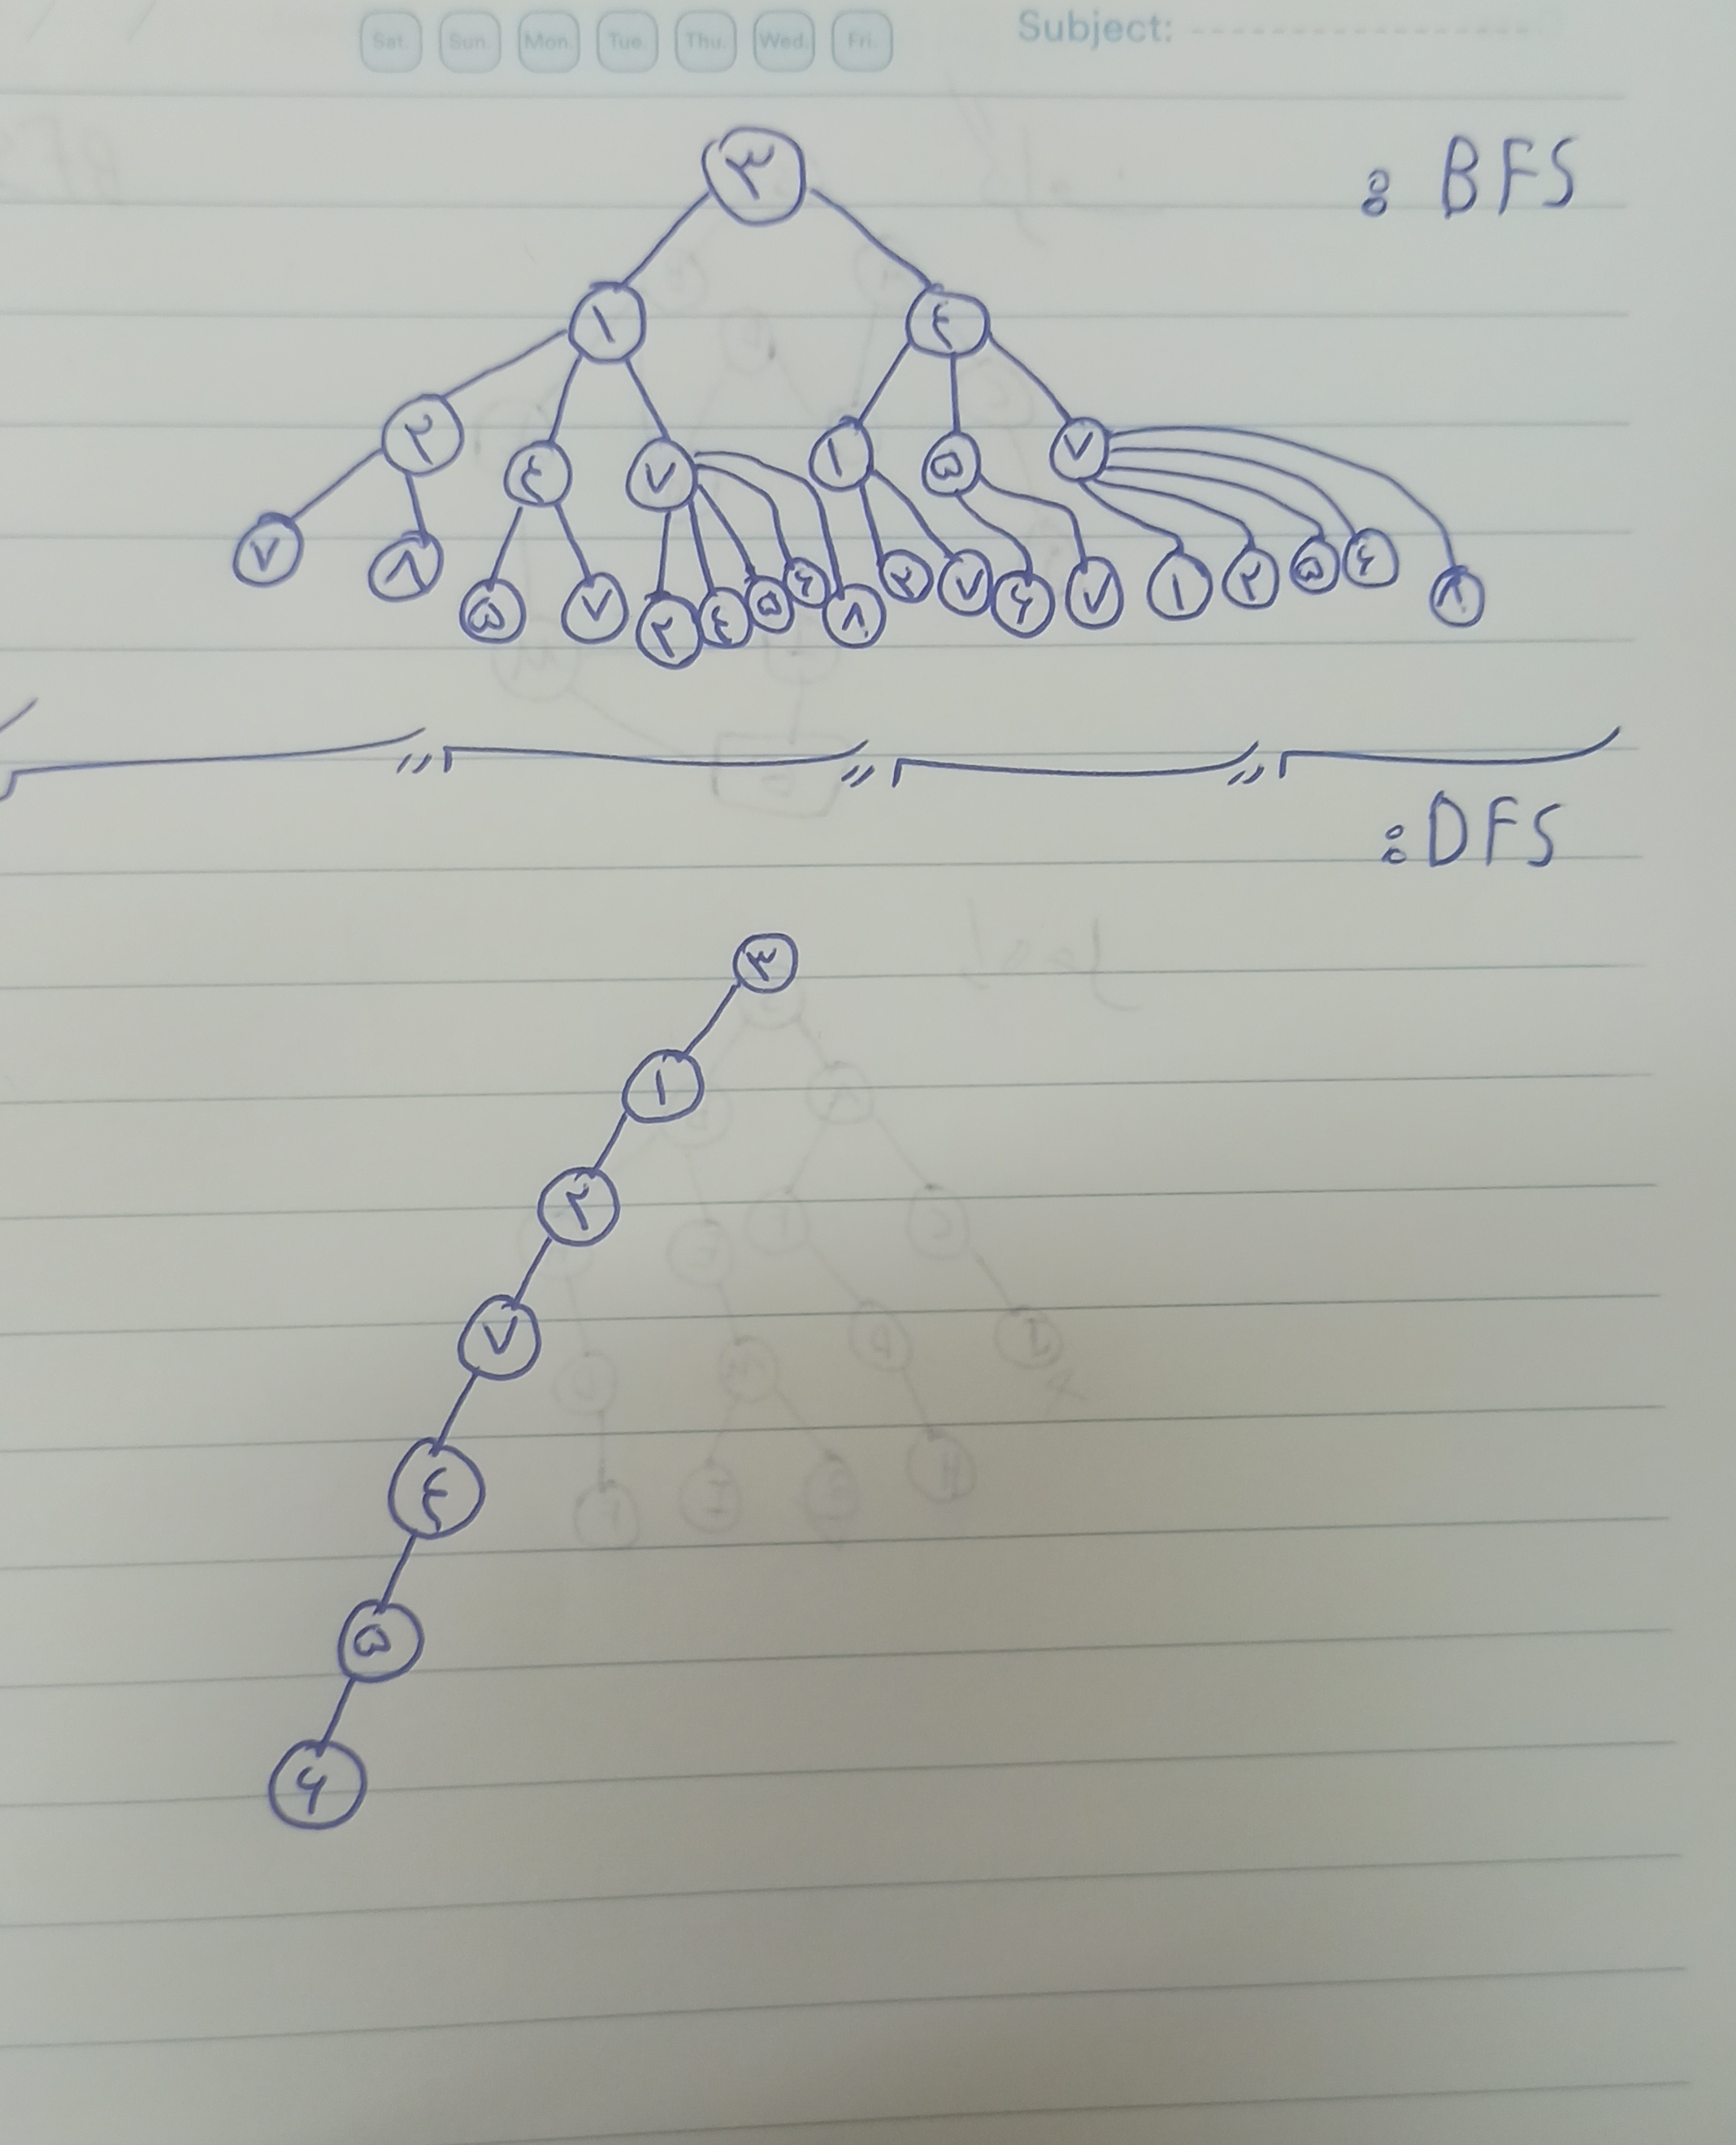 Sat. Sun. Mon. Tue. Thu. Wed. Fri. Subject:
: BFS
۳
۱ ٤
۲ ٤ ۷ ۱ ۵ ۷
۷ ۸ ۵ ۷ ۲ ٤ ۵ ۶ ۸ ۲ ۷ ۶ ۷ ۱ ۲ ۵ ۶ ۸
: DFS
۳
۱
۲
۷
٤
۵
۶